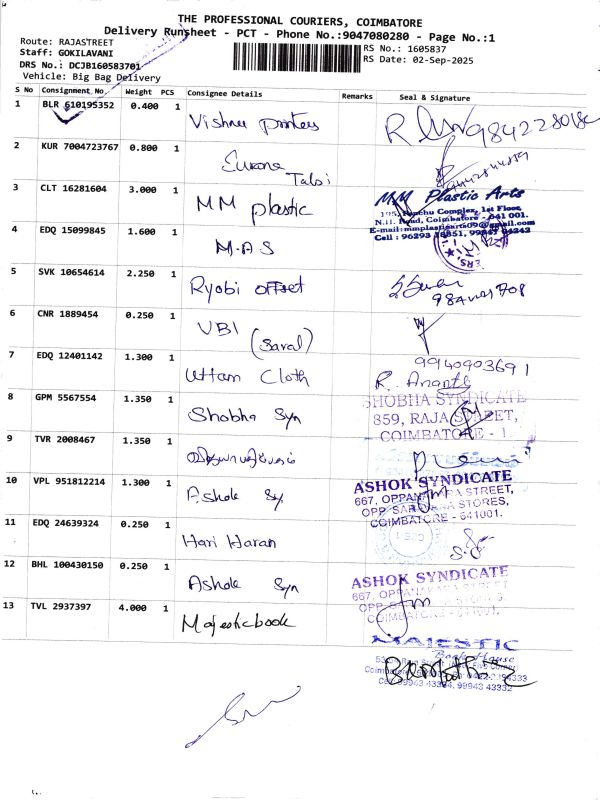 THE PROFESSIONAL COURIERS, COIMBATORE
Delivery Runsheet - PCT - Phone No.:9047080280 - Page No.:1
Route: RAJASTREET
Staff: GOKILAVANI
DRS No.: DCJB160583701
Vehicle: Big Bag Delivery
RS No.: 1605837
RS Date: 02-Sep-2025
S No Consignment No. Weight PCS Consignee Details Remarks Seal & Signature
1 BLR 610195352 0.400 1 Vishnu printers
2 KUR 7004723767 0.800 1
3 CLT 16281604 3.000 1 MM plastic
MM Plastic Arts
195, Complex, 1st Floor,
N.H. Road, Coimbatore - 641 001.
E-mail:mmplasticarts09@gmail.com
4 EDQ 15099845 1.600 1 M.A.S
5 SVK 10654614 2.250 1 Ryobi offset
6 CNR 1889454 0.250 1 UBI
7 EDQ 12401142 1.300 1 Uttam Cloth
9940903691
R. Ananth
8 GPM 5567554 1.350 1 Shobha Syn
SHOBHA SYNDICATE
859, RAJA STREET,
COIMBATORE - 1.
9 TVR 2008467 1.350 1
10 VPL 951812214 1.300 1 Ashok Sy
ASHOK SYNDICATE
667, OPPANAKARA STREET,
OPP. SARAVANA STORES,
COIMBATORE - 641001.
11 EDQ 24639324 0.250 1 Hari Haran
12 BHL 100430150 0.250 1 Ashok Syn
ASHOK SYNDICATE
667, OPPANAKARA STREET,
13 TVL 2937397 4.000 1 Majestic book
MAJESTIC
Book House